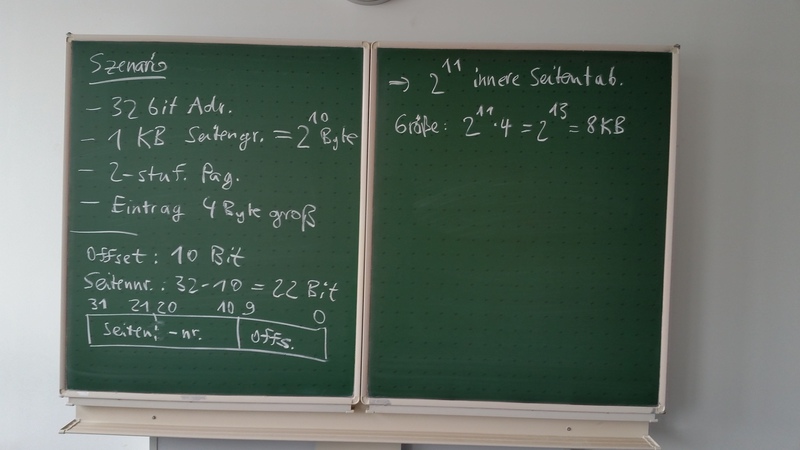 Szenario
- 32 bit Adr.
- 1 KB Seitengr. = 2^10 Byte
- 2-stuf. Pag.
- Eintrag 4 Byte groß
Offset: 10 Bit
Seitennr.: 32-10 = 22 Bit
31 21 20 10 9 0
Seiten -nr. Offs.
→ 2^11 innere Seitentab.
Größe: 2^11 · 4 = 2^13 = 8 KB